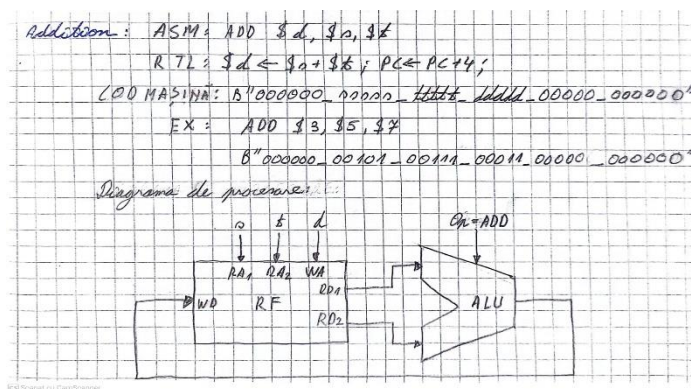 Addition: ASM: ADD $d, $s, $t
RTL: $d ← $s + $t; PC ← PC+4;
COD MAȘINĂ: B"000000_sssss_ttttt_ddddd_00000_000000"
EX: ADD $3, $5, $7
B"000000_00101_00111_00011_00000_000000"
Diagrama de procesare:
s t d Op=ADD
RA1 RA2 WA
RD1
WD RF ALU
RD2
Scanned cu CamScanner